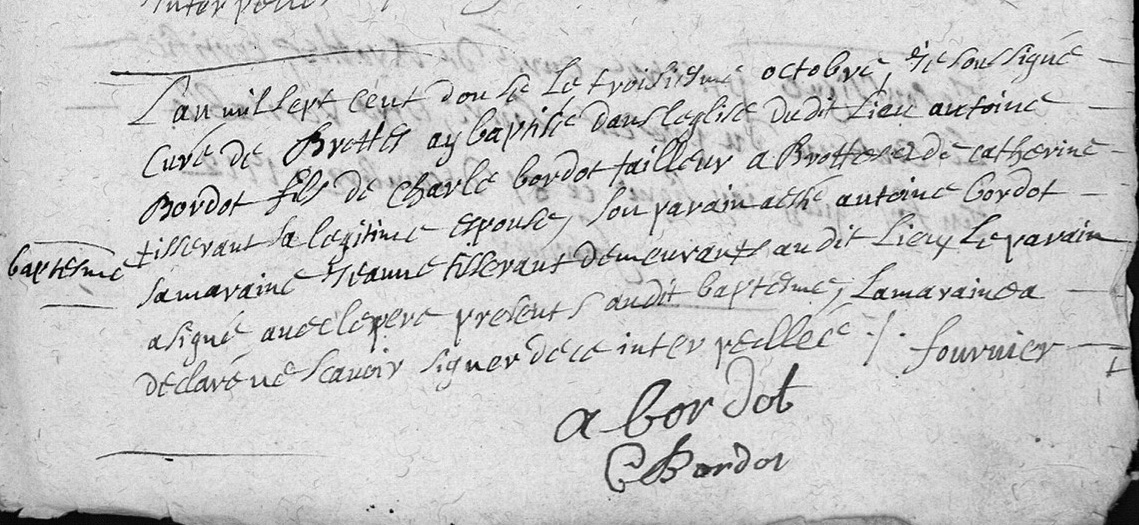 interpellée
L'an mil sept cent douse Le troisiesme octobre, Je soussigné
Curé de Brottes ay baptisé dans leglise dudit Lieu antoine
Bordot fils de charle bordot tailleur a Brottes et de catherine
tisserant sa legitime espouse, son parain a esté antoine bordot
baptesme
sa maraine Jeanne tisserant demeurants audit Lieu, Le parain
a signé avec le pere presents audit baptesme, La maraine a
declaré ne scavoir signer de ce inter peellée ./. fournier
a bordot
C Bordot